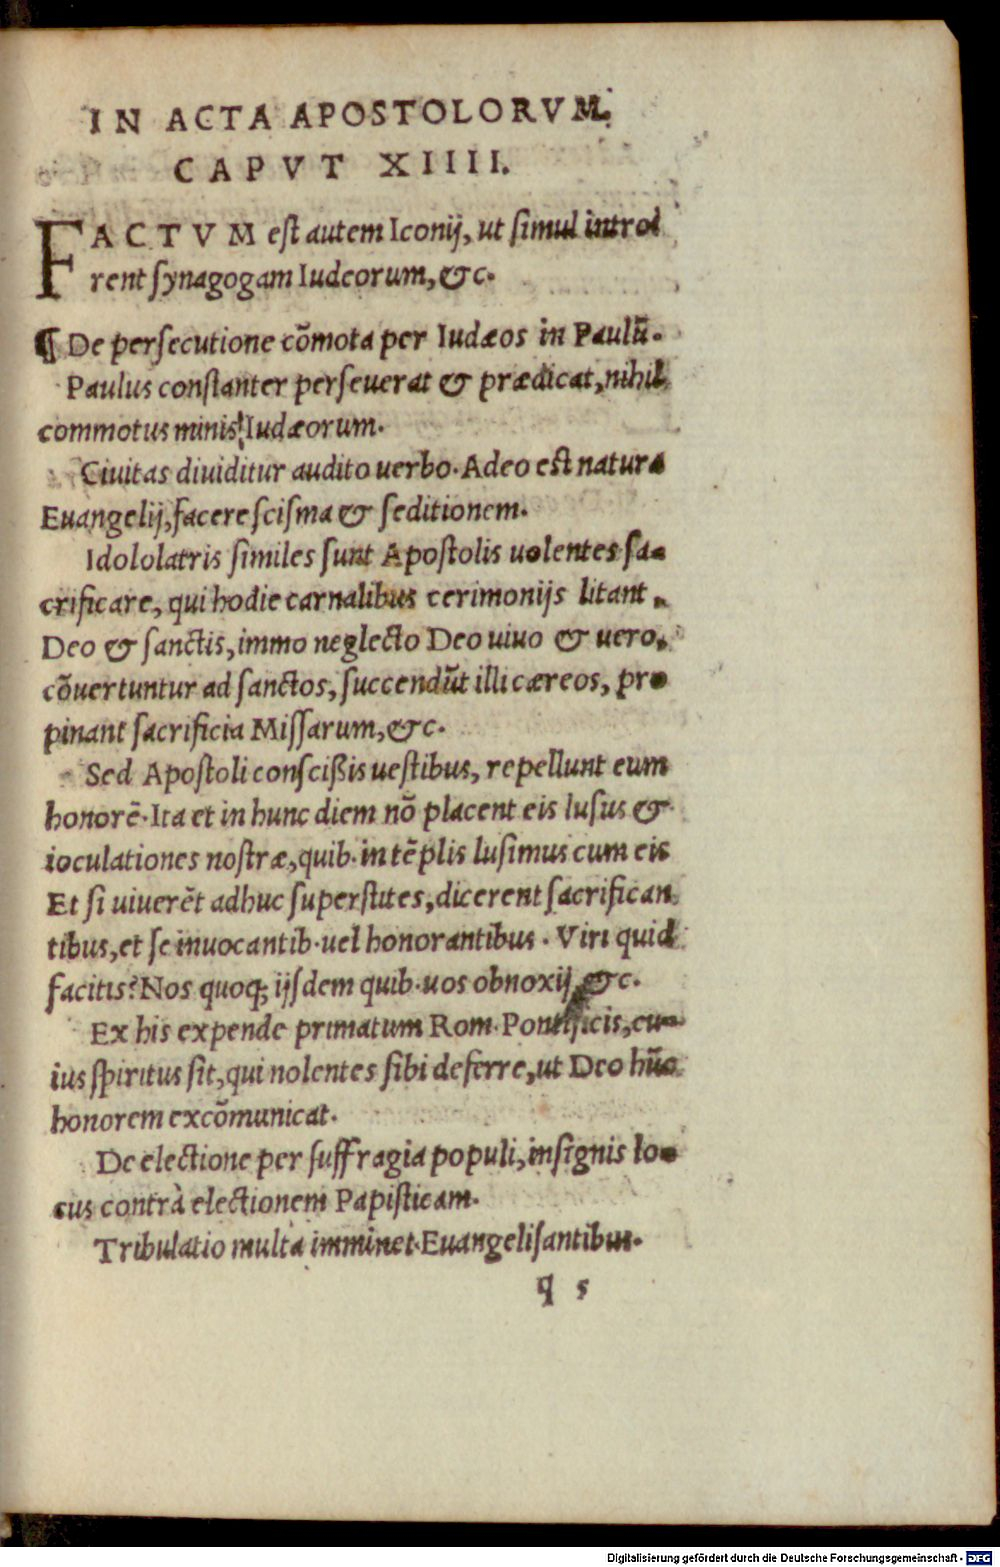 IN ACTA APOSTOLORVM.
CAPVT XIIII.
FACTVM est autem Iconij, ut simul introi
rent synagogam Iudeorum, &c.
¶ De persecutione cōmota per Iudæos in Paulū.
Paulus constanter perseuerat & prædicat, nihil
commotus minis Iudæorum.
Ciuitas diuiditur audito uerbo. Adeo est natura
Euangelij, facere scisma & seditionem.
Idololatris similes sunt Apostolis uolentes sa-
crificare, qui hodie carnalibus cerimonijs litant
Deo & sanctis, immo neglecto Deo uiuo & uero,
cōuertuntur ad sanctos, succendūt illi cæreos, pro
pinant sacrificia Missarum, &c.
Sed Apostoli conscißis uestibus, repellunt eum
honorē. Ita et in hunc diem nō placent eis lusus &
ioculationes nostræ, quib. in tēplis lusimus cum eis
Et si uiuerēt adhuc superstites, dicerent sacrifican
tibus, et se inuocantib. uel honorantibus. Viri quid
facitis? Nos quoq; ijsdem quib. uos obnoxij, &c.
Ex his expende primatum Rom. Pontificis, cu-
ius spiritus sit, qui nolentes sibi deferre, ut Deo hūc
honorem excōmunicat.
De electione per suffragia populi, insignis lo-
cus contrà electionem Papisticam.
Tribulatio multa imminet. Euangelisantibus.
q 5
Digitalisierung gefördert durch die Deutsche Forschungsgemeinschaft - DFG